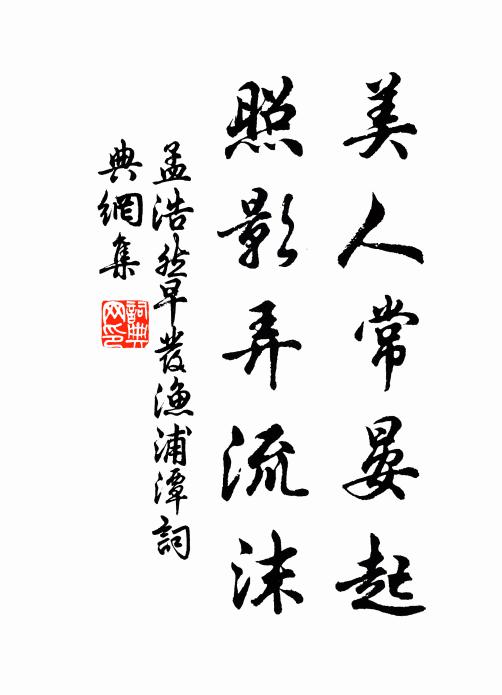 美人常晏起
照影弄流沫
孟浩然早發漁浦潭詞
典網集
詞典网印